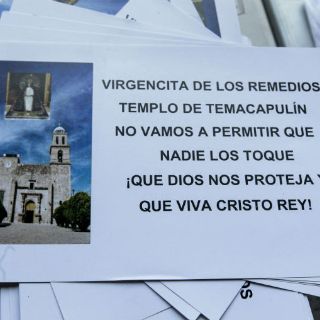 VIRGENCITA DE LOS REMEDIOS
TEMPLO DE TEMACAPULÍN
NO VAMOS A PERMITIR QUE
NADIE LOS TOQUE
¡QUE DIOS NOS PROTEJA Y
QUE VIVA CRISTO REY!